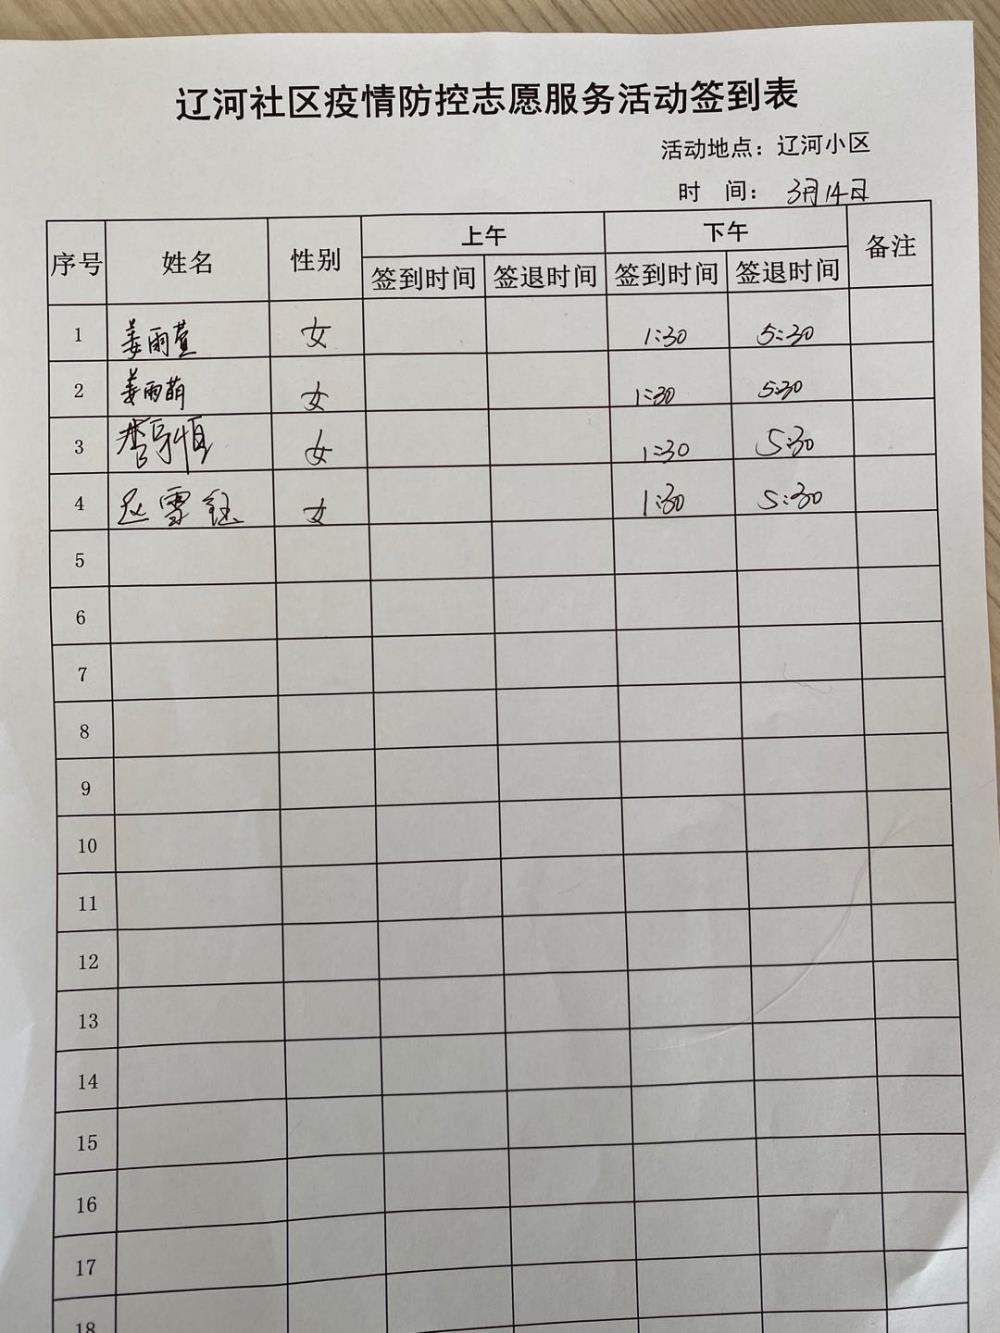 辽河社区疫情防控志愿服务活动签到表
活动地点：辽河小区
时 间： 3月14日
序号 姓名 性别 上午 下午 备注
签到时间 签退时间 签到时间 签退时间
1 姜雨萱 女 1:30 5:30
2 姜雨萌 女 1:30 5:30
3 女 1:30 5:30
4 赵雪钰 女 1:30 5:30
5
6
7
8
9
10
11
12
13
14
15
16
17
18